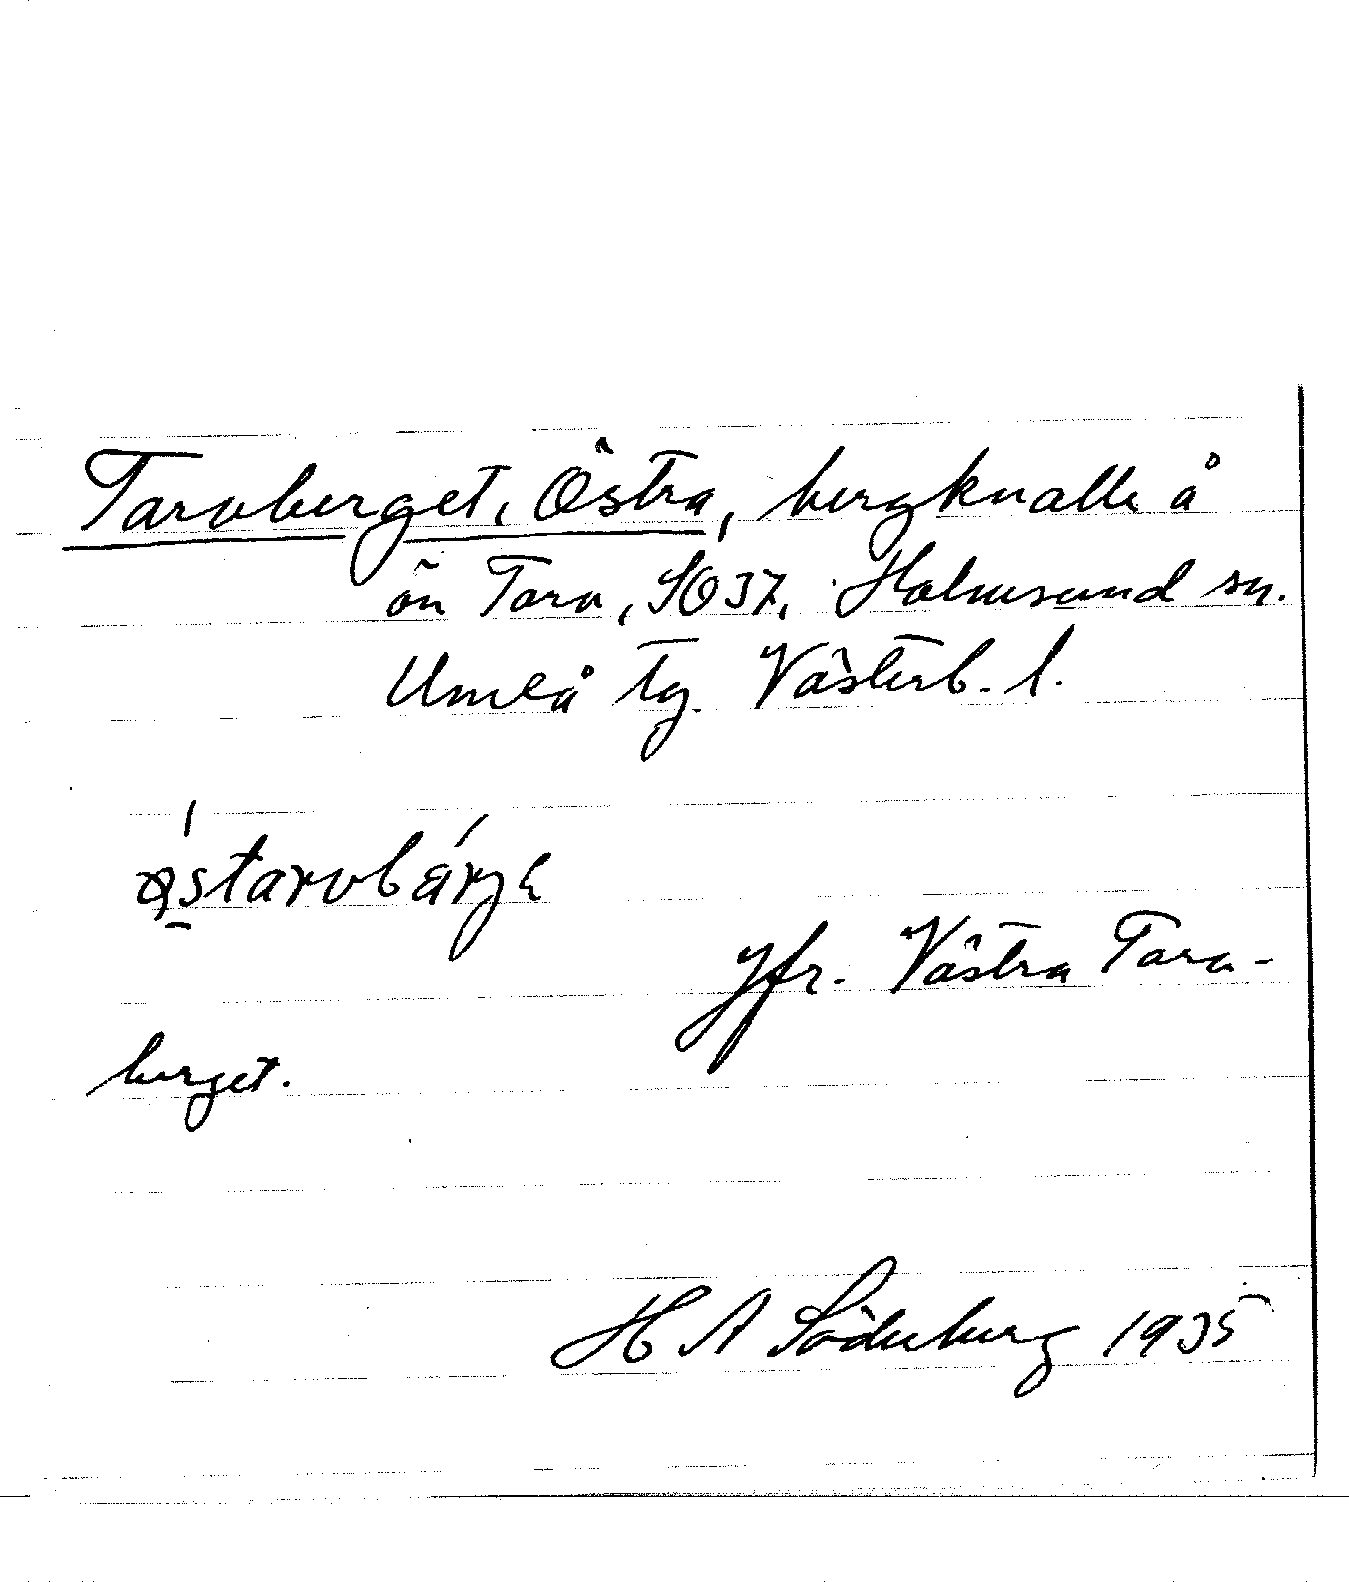 Tarvberget, Östra, bergknalle å
ön Tara, SO37, Holmsund sn.
Umeå tg. Västerb. l.
östarvbárje
Jfr. Västra Tara-
berget.
H A Söderberg 1935